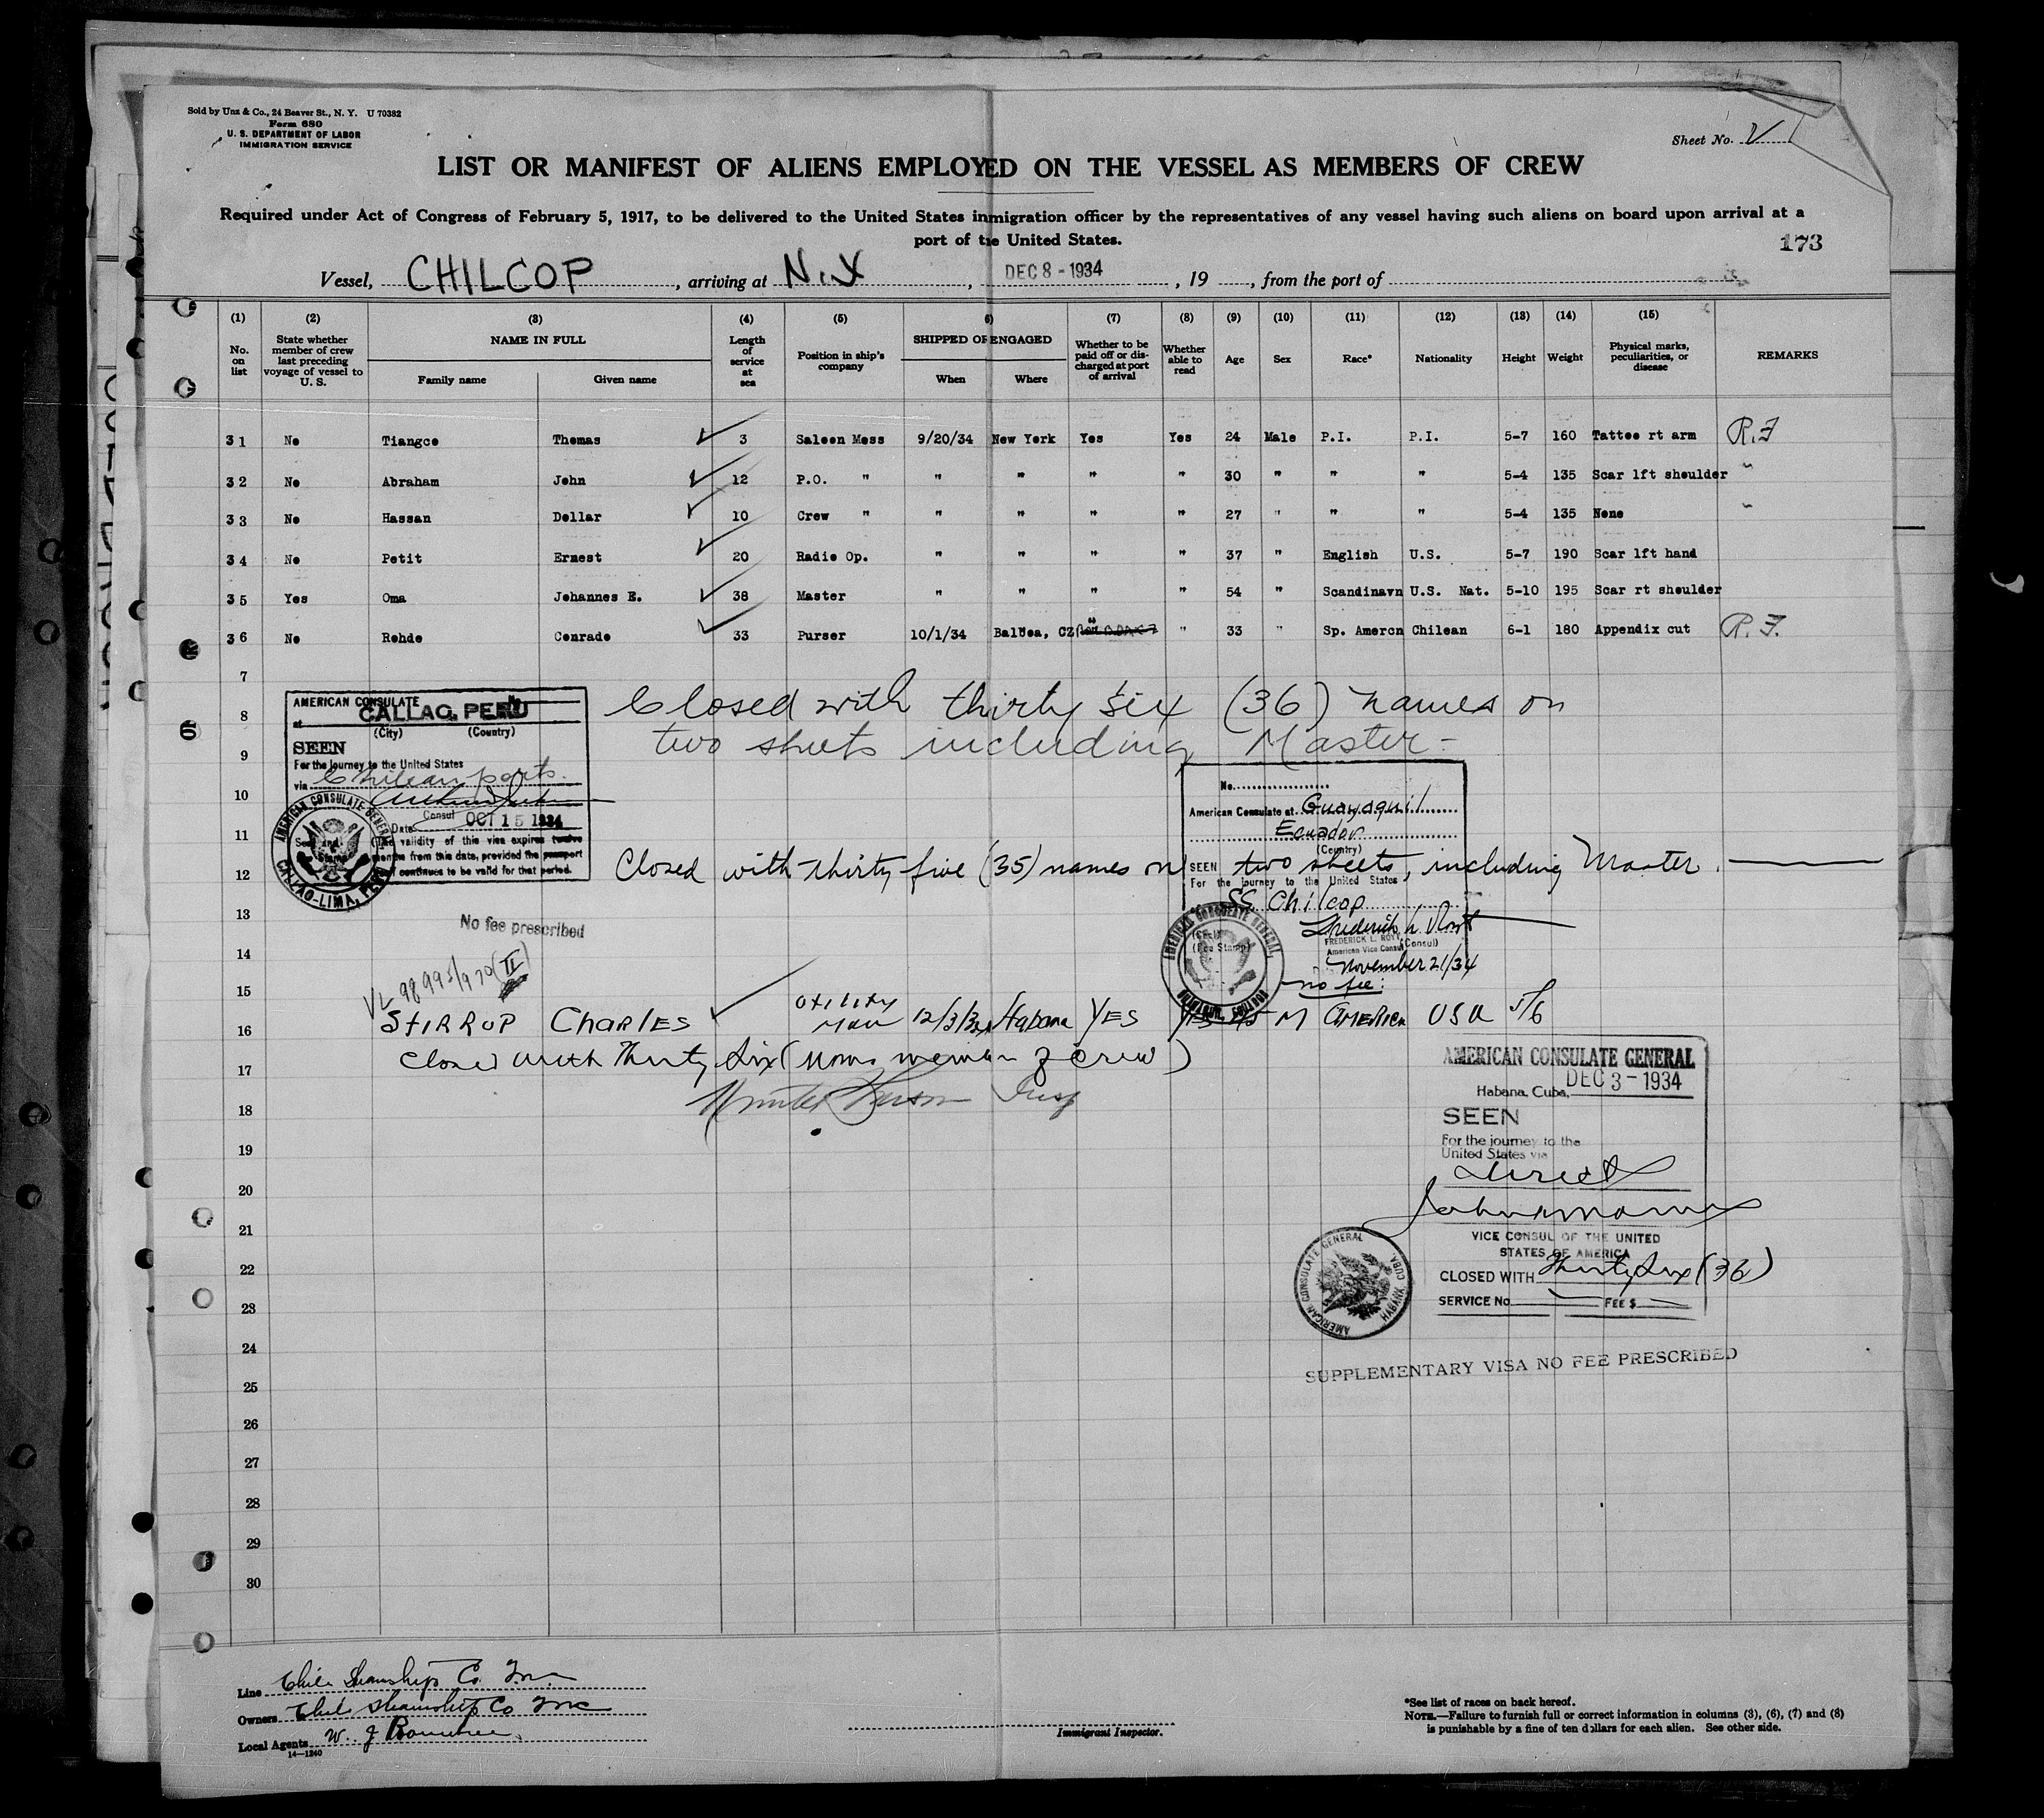 Sold by Unz & Co., 24 Beaver St., N. Y. U 70382
Form 680
U. S. DEPARTMENT OF LABOR
IMMIGRATION SERVICE
Sheet No. V
LIST OR MANIFEST OF ALIENS EMPLOYED ON THE VESSEL AS MEMBERS OF CREW
Required under Act of Congress of February 5, 1917, to be delivered to the United States immigration officer by the representatives of any vessel having such aliens on board upon arrival at a
port of the United States.
173
Vessel, CHILCOP, arriving at N.Y, DEC 8 - 1934, 19, from the port of
(1) (2) (3) (4) (5) 6) (7) (8) (9) (10) (11) (12) (13) (14) (15)
No. on list
State whether member of crew last preceding voyage of vessel to U. S.
NAME IN FULL
Family name Given name
Length of service at sea
Position in ship's company
SHIPPED OR ENGAGED
When Where
Whether to be paid off or discharged at port of arrival
Whether able to read
Age Sex Race* Nationality Height Weight
Physical marks, peculiarities, or disease
REMARKS
31 No Tiangco Thomas 3 Saloon Mess 9/20/34 New York Yes Yes 24 Male P.I. P.I. 5-7 160 Tattoo rt arm R.F
32 No Abraham John 12 P.O. " " " " " 30 " " " 5-4 135 Scar lft shoulder "
33 No Hassan Dollar 10 Crew " " " " " 27 " " " 5-4 135 None "
34 No Petit Ernest 20 Radio Op. " " " " 37 " English U.S. 5-7 190 Scar lft hand
35 Yes Oma Johannes E. 38 Master " " " " 54 " Scandinavn U.S. Nat. 5-10 195 Scar rt shoulder
36 No Rohde Conrado 33 Purser 10/1/34 Balboa, CZ " " 33 " Sp. Amercn Chilean 6-1 180 Appendix cut R.F.
7
8
9
10
11
12
13
14
15
16
17
18
19
20
21
22
23
24
25
26
27
28
29
30
Closed with thirty six (36) names on
two sheets including Master -
AMERICAN CONSULATE
at CALLAO, PERU
(City) (Country)
SEEN
For the journey to the United States
via Chilean ports.
Consul
Date OCT 15 1934
The validity of this visa expires twelve
months from this date, provided the passport
continues to be valid for that period.
AMERICAN CONSULATE GENERAL
CALLAO-LIMA, PERU
No fee prescribed
No.
American Consulate at Guayaquil
Ecuador
(Country)
SEEN
For the journey to the United States
SS. Chilcop
Closed with thirty five (35) names on two sheets, including Master.
FREDERICK L. ROYT
American Vice Consul
(Consul)
(Fee Stamp)
November 21/34
no fee:
AMERICAN CONSULATE GENERAL
STIRRUP Charles Utility Man 12/3/34 Habana YES M America USA 5/6
Closed with Thirty Six ( members of crew )
Insp
AMERICAN CONSULATE GENERAL
Habana, Cuba, DEC 3 - 1934
SEEN
For the journey to the
United States via
direct
VICE CONSUL OF THE UNITED
STATES OF AMERICA
CLOSED WITH Thirty Six (36)
SERVICE No. FEE $
AMERICAN CONSULATE GENERAL HABANA CUBA
SUPPLEMENTARY VISA NO FEE PRESCRIBED
Line Chile Steamship Co. Inc.
Owners Chile Steamship Co Inc
Local Agents W. J.
14—1240
Immigrant Inspector.
*See list of races on back hereof.
NOTE.—Failure to furnish full or correct information in columns (3), (6), (7) and (8)
is punishable by a fine of ten dollars for each alien. See other side.